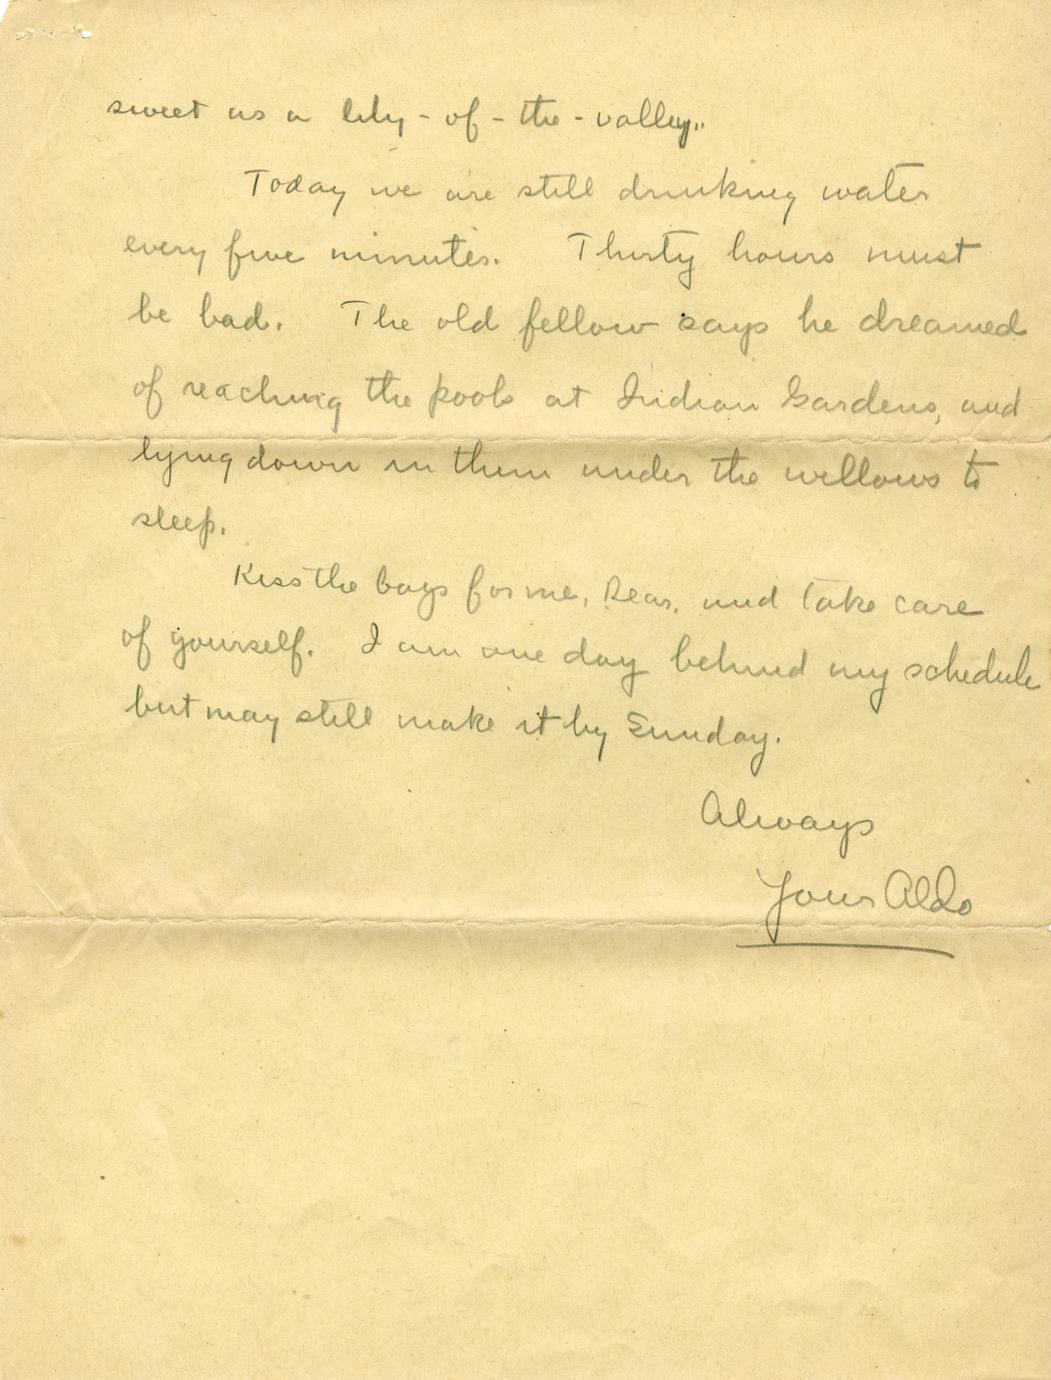 sweet as a lily-of-the-valley..
Today we are still drinking water
every five minutes. Thirty hours must
be bad. The old fellow says he dreamed
of reaching the pools at Indian Gardens, and
lying down in them under the willows to
sleep.
Kiss the boys for me, Dear, and take care
of yourself. I am one day behind my schedule
but may still make it by Sunday.
Always
Your Aldo